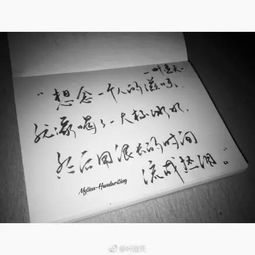 "想念一个人的滋味,
就像喝了一大杯冰水,
然后用很长的时间
流成热泪。"
Handwriting